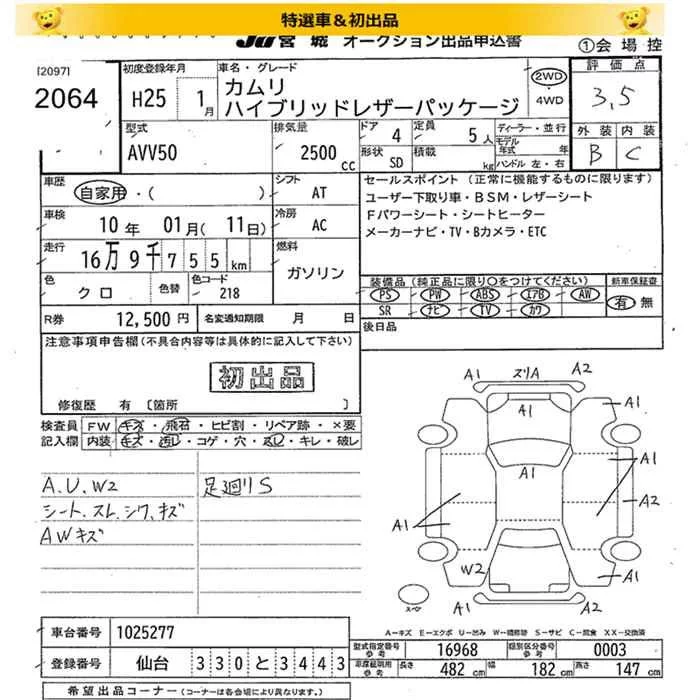 特選車＆初出品
JU宮城 オークション出品申込書
①会場控
[2097]
2064
初度登録年月
H25 1月
車名・グレード
カムリ
ハイブリッドレザーパッケージ
2WD
・4WD
評価点
3,5
外装 内装
B C
型式
AVV50
排気量
2500cc
ドア 4
定員 5人
形状 SD
積載 kg
ディーラー・並行
モデル年式 年
ハンドル 左・右
車歴
自家用・( )
シフト
AT
車検
10年 01月(11日)
冷房
AC
走行
16万9千755km
燃料
ガソリン
色
クロ
色替
色コード
218
R券 12,500円
名変通知期限 月 日
セールスポイント(正常に機能するものに限ります)
ユーザー下取り車・BSM・レザーシート
Fパワーシート・シートヒーター
メーカーナビ・TV・Bカメラ・ETC
装備品(純正品に限り○をつけてください)
PS PW ABS エアB AW
SR ナビ TV カワ
新車保証書
有 無
後日品
注意事項申告欄(不具合内容等は具体的に記入して下さい)
初出品
修復歴 有 〔箇所 〕
検査員記入欄
FW キズ・飛石・ヒビ割・リペア跡・×要
内装 キズ・汚レ・コゲ・穴・スレ・キレ・破レ
A.U.W2
シート.スレ.シワ.キズ
AWキズ
足廻りS
A1 スリA A2
A1
A1
A1
A1
A2
A1
W2
A1
A1 A2
スペア
A-キズ E-エクボ U-凹み W-補修跡 S-サビ C-腐食 XX-交換済
車台番号 1025277
登録番号 仙台 330と3443
型式指定番号参考 16968
類別区分番号参考 0003
車庫証明用参考 長さ 482cm 幅 182cm 高さ 147cm
希望出品コーナー(コーナーは各会場により異なります。)